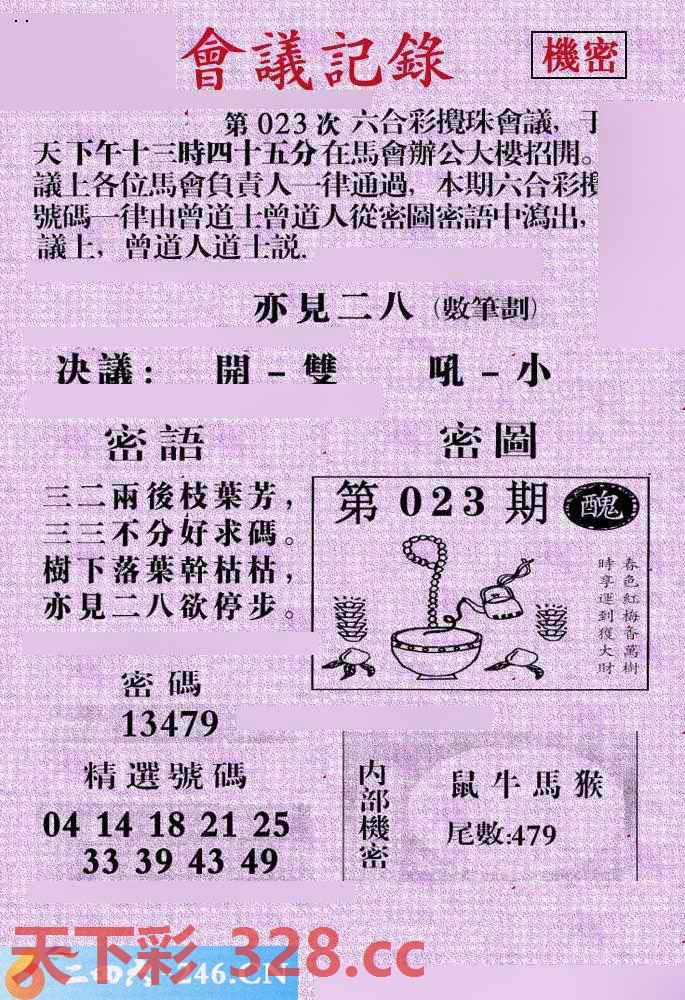 會議記錄
機密
第023次 六合彩攪珠會議，于
天下午十三時四十五分在馬會辦公大樓招開。
議上各位馬會負責人一律通過，本期六合彩攪
號碼一律由曾道士曾道人從密圖密語中瀉出，
議上，曾道人道士説.
亦見二八（數筆劃）
决議： 開－雙 吼－小
密語
三二兩後枝葉芳，
三三不分好求碼。
樹下落葉幹枯枯，
亦見二八欲停步。
密圖
第023期 醜
春色紅梅香萬樹
時享運到獲大財
密碼
13479
精選號碼
04 14 18 21 25
33 39 43 49
内部機密
鼠牛馬猴
尾數:479
天下彩 328.cc
246.CN